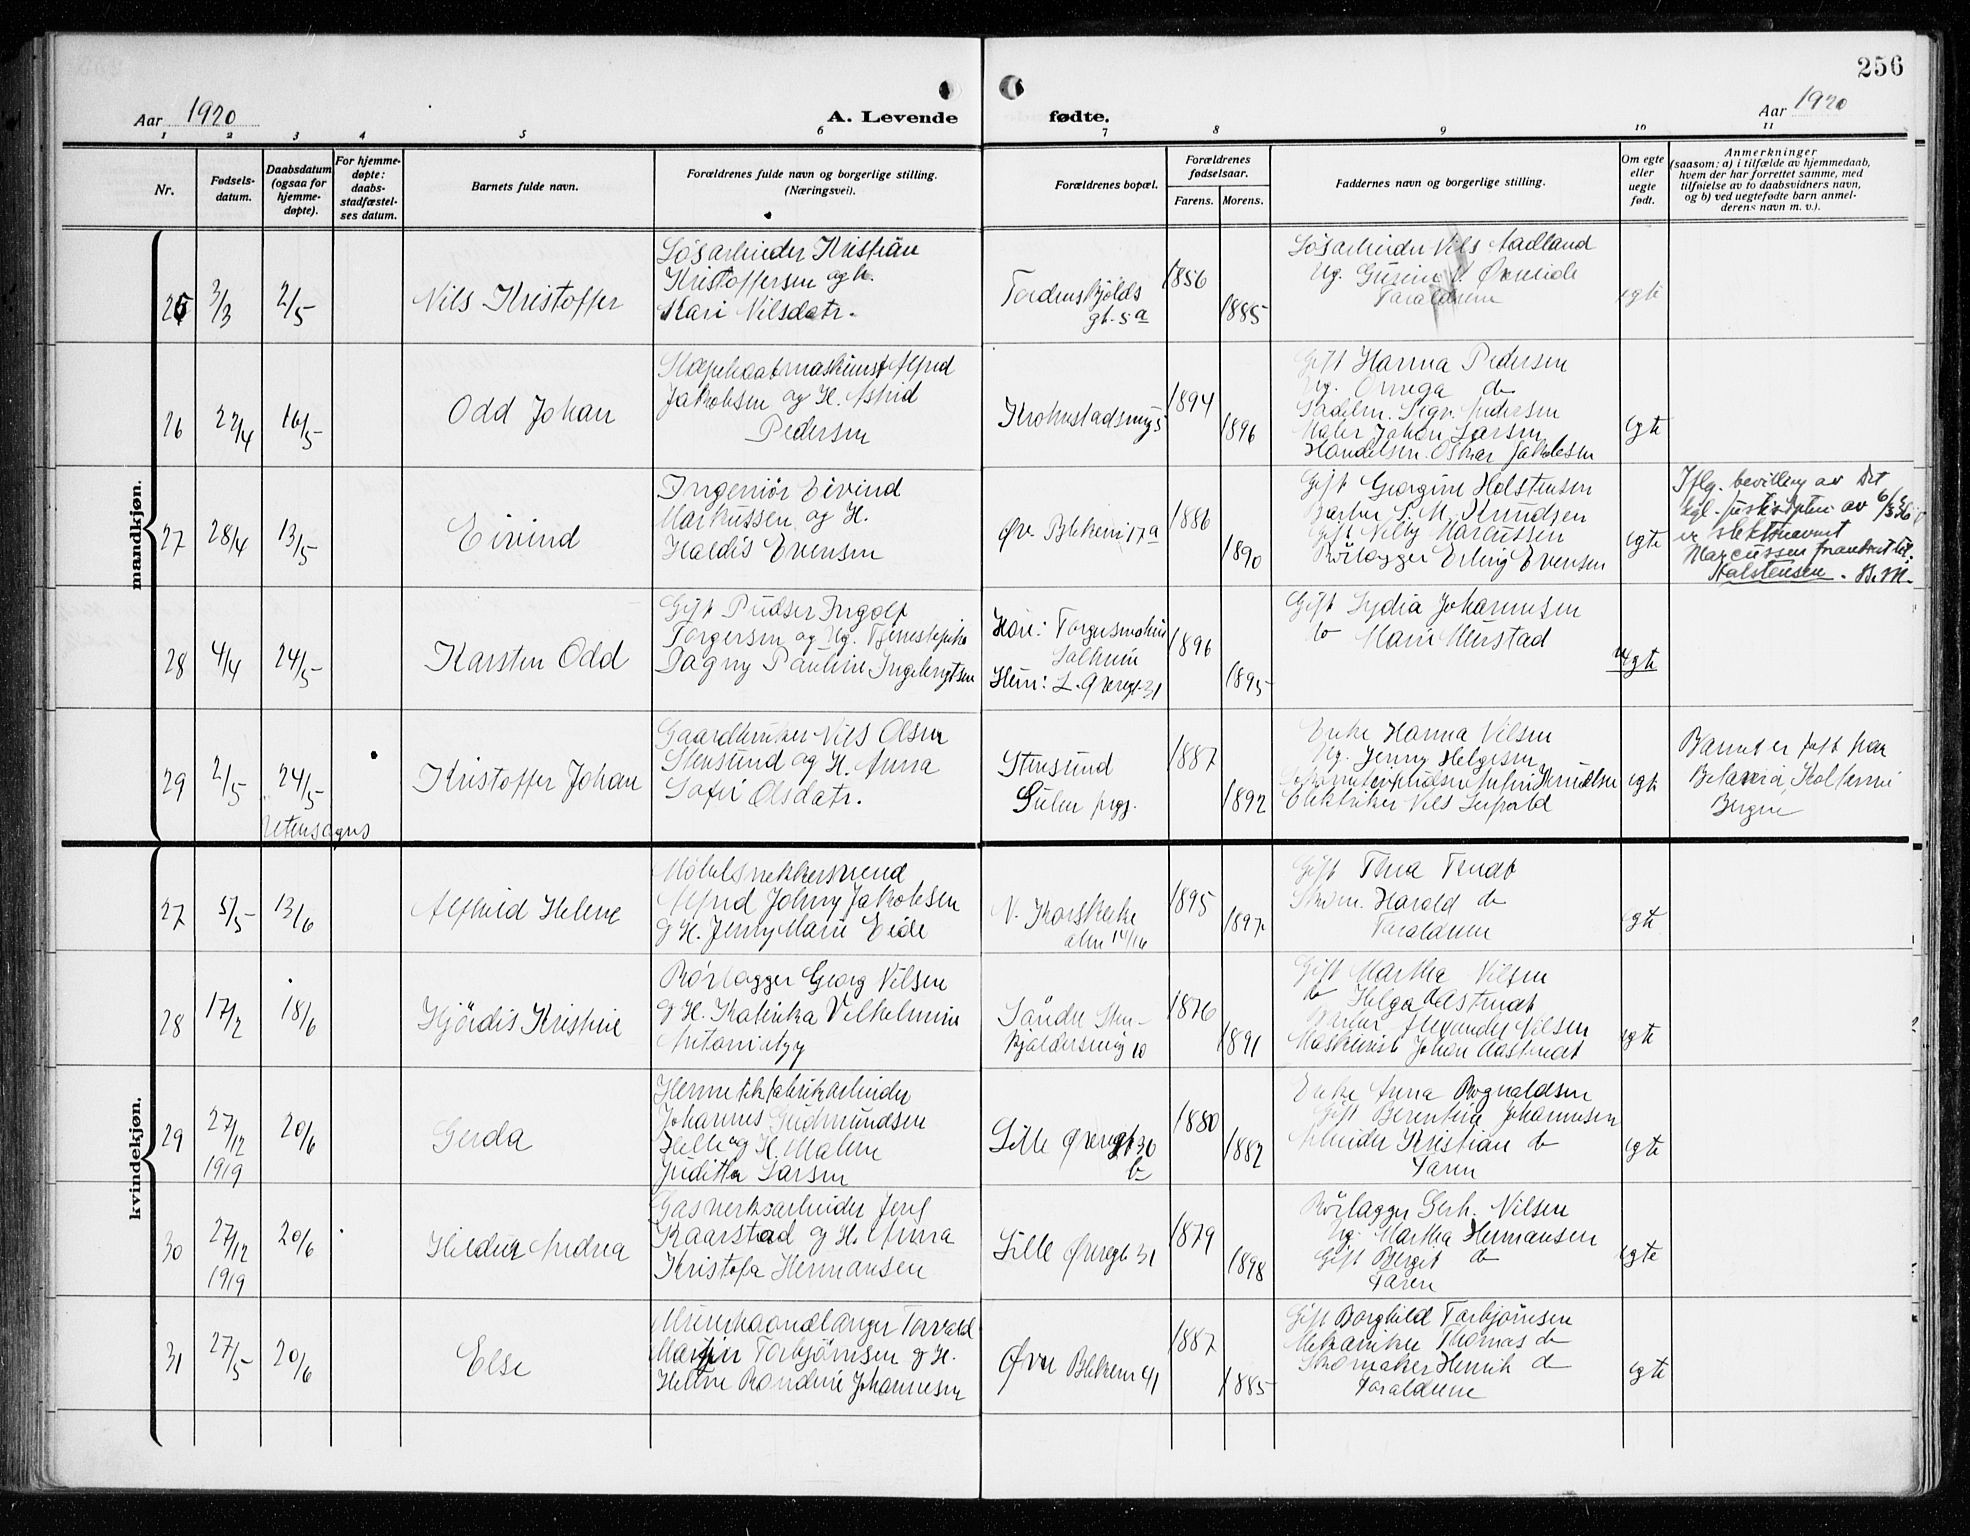 256
Aar 1920
A. Levende
fødte.
Aar 1920
1 2 3 4 5 6 7 8 9 10 11
Nr.
Fødsels-
datum.
Daabsdatum
(ogsaa for
hjemme-
døpte).
For hjemme-
døpte:
daabs-
stadfæstel-
ses datum.
Barnets fulde navn.
Forældrenes fulde navn og borgerlige stilling.
(Næringsvei).
Forældrenes bopæl.
Forældrenes
fødselsaar.
Farens. Morens.
Faddernes navn og borgerlige stilling.
Om egte
eller
uegte
født.
Anmerkninger
(saasom: a) i tilfælde av hjemmedaab,
hvem der har forrettet samme, med
tilføielse av to daabsvidners navn,
og b) ved uegtefødte barn anmel-
derens navn m. v.).
mandkjøn.
25 3/3 2/5
Nils Kristoffer
Løsarbeider Kristian
Kristoffersen og h.
Kari Nilsdatr.
Tordenskjolds
gt. 5a
1856
1885
Løsarbeider Nils Aadland
Ug.
Forældrene
egte
26 22/4 16/5
Odd Johan
Alfred
Jakobsen og H. Astrid
Pedersen
1894
1896
Gift Hanna Pedersen
Ug. Omega do
Sadelm. Sigv. Pedersen
Maler Johan Larsen
Handelsm. Oskar Jakobsen
egte
27 28/4 13/5
Eivind
Ingeniør Eivind
Markussen og H.
Haldis Evensen
Øv. Blekevei 17a
1886
1890
Gift Georgine Holstensen
Barber S. M. Knudsen
Gift Marcussen
Rørlægger Erling Evensen
egte
Iflg. bevilling av Det
kgl. av 6/3 36
er slektsnavnet
Marcussen forandret til:
Halstensen. B.M.
28 4/4 24/5
Karsten Odd
Gift Pudser Ingolf
Torgersen og Ug.
Dagny Pauline Ingebrigtsen
Han:
Solheim
Hun: L. Øvregt. 31
1896
1895
Gift Lydia Johannesen
do Marie
uegte
29 2/5 24/5
Utensogns
Kristoffer Johan
Gaardbruker Nils Olsen
Stensund og H. Anna
Sofie Olsdatr.
Stensund
Sulen prgj.
1887
1892
Enke Hanna Nilsen
Ug. Jenny Helgesen
Knudsen
Elektriker Nils
egte
Barnet er født paa
Betania, Kalfarvei
Bergen
kvindekjøn.
27 5/5 13/6
Alfhild Helene
Møbelsnekkersvend
Alfred Johny Jakobsen
og H. Jenny Marie Eide
N. Korskirke
alm 14/16
1895
1897
Gift Tina Tendt
Harald do
Forældrene
egte
28 17/2 18/6
Hjördis Kristine
Rørlægger Georg Nilsen
og H. Katinka Vilhelmine
Søndre Sten-
kjeldersmug 10
1876
1891
Gift Martha Nilsen
do Helga Aastvedt
Barber Alexander Nilsen
Maskinist Johan Aastvedt
egte
29 27/12 1919 20/6
Gerda
Hermetikfabrikarbeider
Johannes Gudmundsen
Helle og H. Malene
Juditha Larsen
Lille Øvregt 30
b
1880
1882
Enke Anna Rognaldsen
Gift Berentine Johannesen
Arbeider Kristian do
Faren
egte
30 27/12 1919 20/6
Hildur Andrea
Gasverksarbeider Jens
Kaarstad og H. Anna
Kristofa Hermansen
Lille Øvregt 31
1879
1898
Rørlægger Gerh. Nilsen
Ug. Martha Hermansen
Gift Bergit do
Faren
egte
31 27/5 20/6
Else
Murerhaandlanger Torvald
Martin Torbjørnsen og H.
Helene Rondine Johannesen
Øvre Blekevei 41
1887
1885
Gift Borghild Torbjørnsen
Mekaniker Thomas do
Skomaker Henrik do
Forældrene
egte